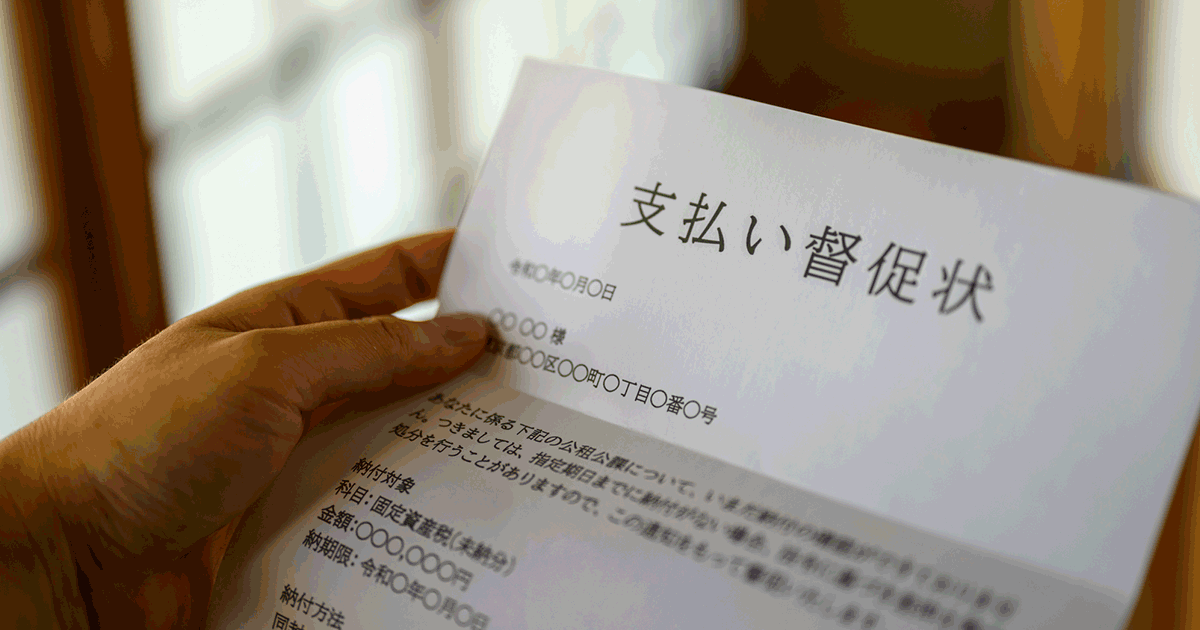 支払い督促状
令和〇年〇月〇日
〇〇 〇〇 様
都〇〇区〇〇町〇丁目〇番〇号
あなたに係る下記の公租公課について、いまだ納付の確認ができておりませ
ん。つきましては、指定期日までに納付がない場合、法令に基づき
処分を行うことがありますので、この通知をもって督促いたします。
納付対象
科目：固定資産税（未納分）
金額：〇〇〇,〇〇〇円
納期限：令和〇年〇月〇日
納付方法
同封